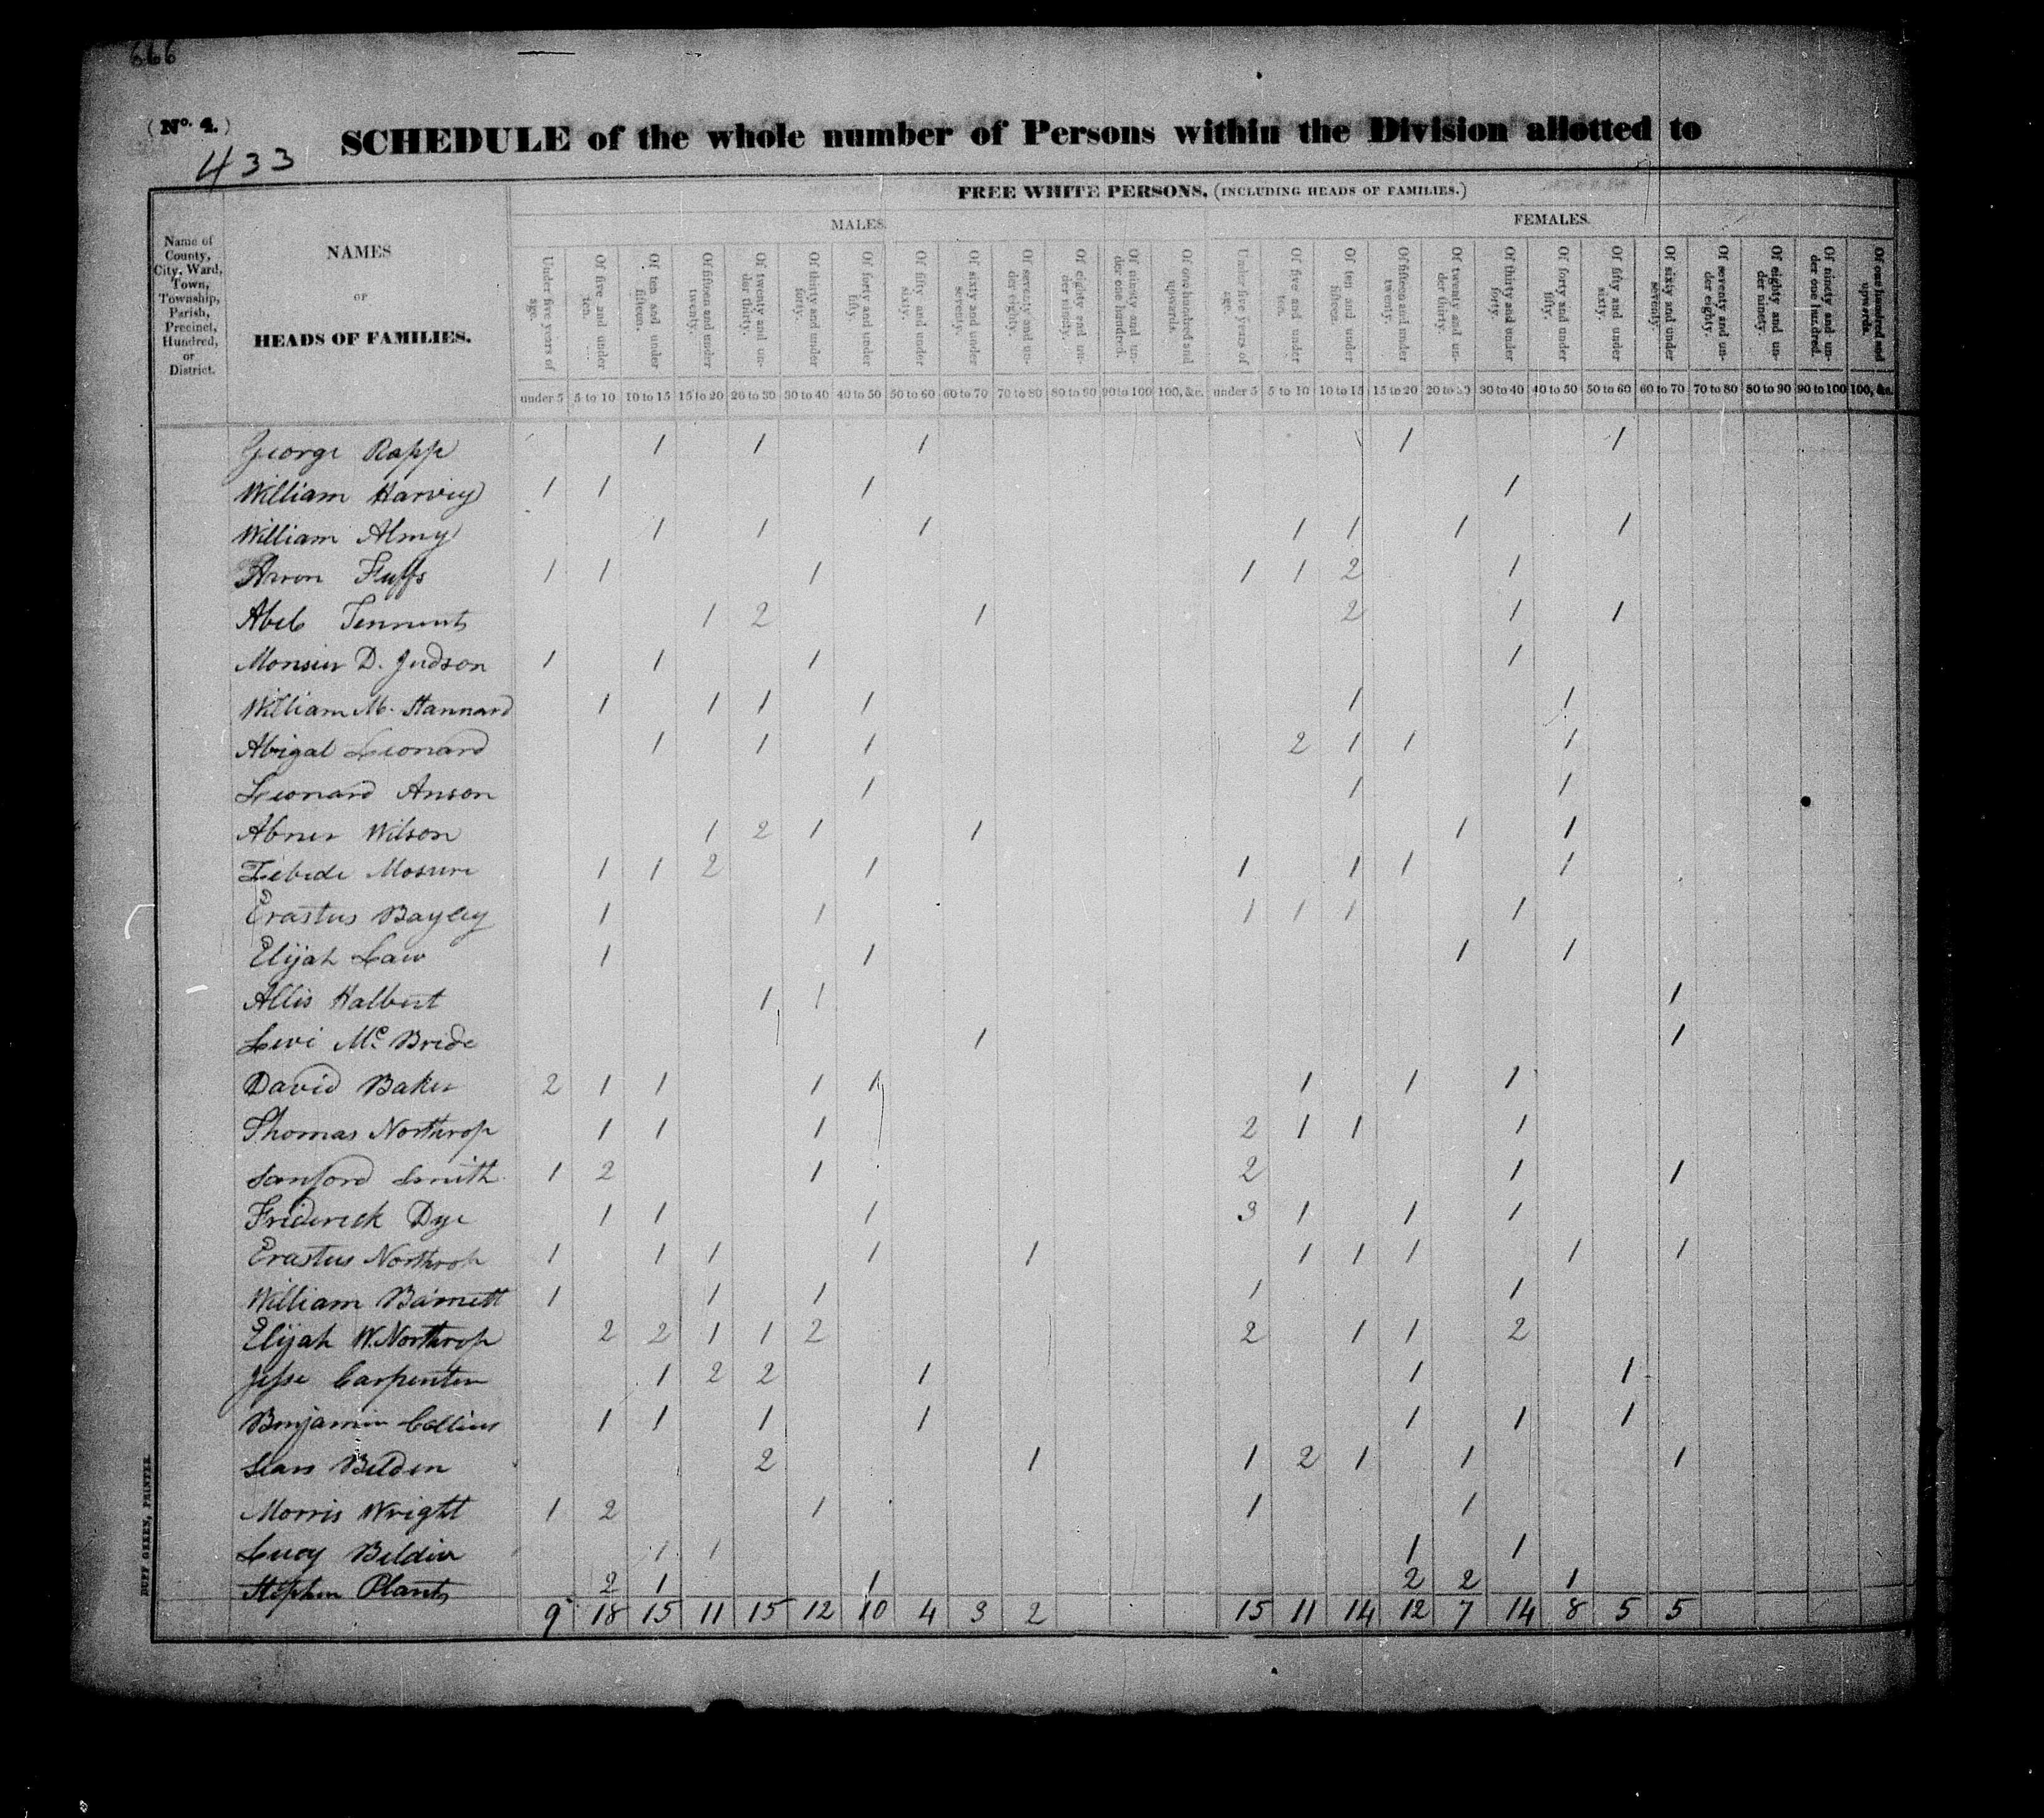 666
(No. 4.)
433
SCHEDULE of the whole number of Persons within the Division allotted to
FREE WHITE PERSONS, (INCLUDING HEADS OF FAMILIES.)
MALES. FEMALES.
Name of County, City, Ward, Town, Township, Parish, Precinct, Hundred, or District.
NAMES
OF
HEADS OF FAMILIES.
Under five years of age. Of five and under ten. Of ten and under fifteen. Of fifteen and under twenty. Of twenty and under thirty. Of thirty and under forty. Of forty and under fifty. Of fifty and under sixty. Of sixty and under seventy. Of seventy and under eighty. Of eighty and under ninety. Of ninety and under one hundred. Of one hundred and upwards. Under five years of age. Of five and under ten. Of ten and under fifteen. Of fifteen and under twenty. Of twenty and under thirty. Of thirty and under forty. Of forty and under fifty. Of fifty and under sixty. Of sixty and under seventy. Of seventy and under eighty. Of eighty and under ninety. Of ninety and under one hundred. Of one hundred and upwards.
under 5 5 to 10 10 to 15 15 to 20 20 to 30 30 to 40 40 to 50 50 to 60 60 to 70 70 to 80 80 to 90 90 to 100 100, &c. under 5 5 to 10 10 to 15 15 to 20 20 to 30 30 to 40 40 to 50 50 to 60 60 to 70 70 to 80 80 to 90 90 to 100 100, &c.
George Rapp 1 1 1 1 1
William Harvey 1 1 1 1
William Almy 1 1 1 1 1 1 1
Aaron 1 1 1 1 1 2 1
Abel Tennant 1 2 1 2 1 1
D. Judson 1 1 1 1
William M. Stannard 1 1 1 1 1 1
Abigal Leonard 1 1 1 2 1 1 1
Leonard Anson 1 1 1
Abner Wilson 1 2 1 1 1 1
1 1 2 1 1 1 1 1
Erastus Bayley 1 1 1 1 1 1
Elijah Law 1 1 1 1
Allis Halbert 1 1 1
Levi Mc Bride 1 1
David Baker 2 1 1 1 1 1 1 1
Thomas Northrop 1 1 1 2 1 1 1
Sanford Smith 1 2 1 2 1 1
Friderick Dye 1 1 1 3 1 1 1
Erastus Northrop 1 1 1 1 1 1 1 1 1 1
William Barnett 1 1 1 1 1
Elijah W. Northrop 2 2 1 1 2 2 1 1 2
Jesse Carpenter 1 2 2 1 1 1
Benjamin Collins 1 1 1 1 1 1 1
Sears Belden 2 1 1 2 1 1 1
Morris Wright 1 2 1 1 1
Lucy Beldin 1 1 1 1
Stephen Plants 2 1 1 2 2 1
9 18 15 11 15 12 10 4 3 2 15 11 14 12 7 14 8 5 5
DUFF GREEN, PRINTER.